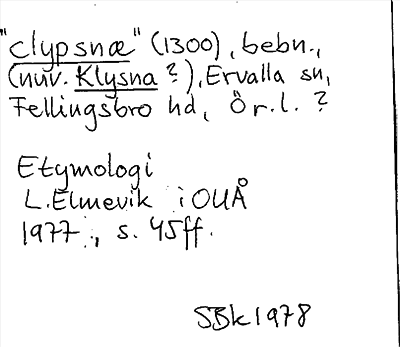 "clypsnæ" (1300), bebn.,
(nuv. Klysna ?), Ervalla sn,
Fellingsbro hd, Ör.l. ?
Etymologi
L. Elmevik i OUÅ
1977, s. 45ff.
SBk 1978